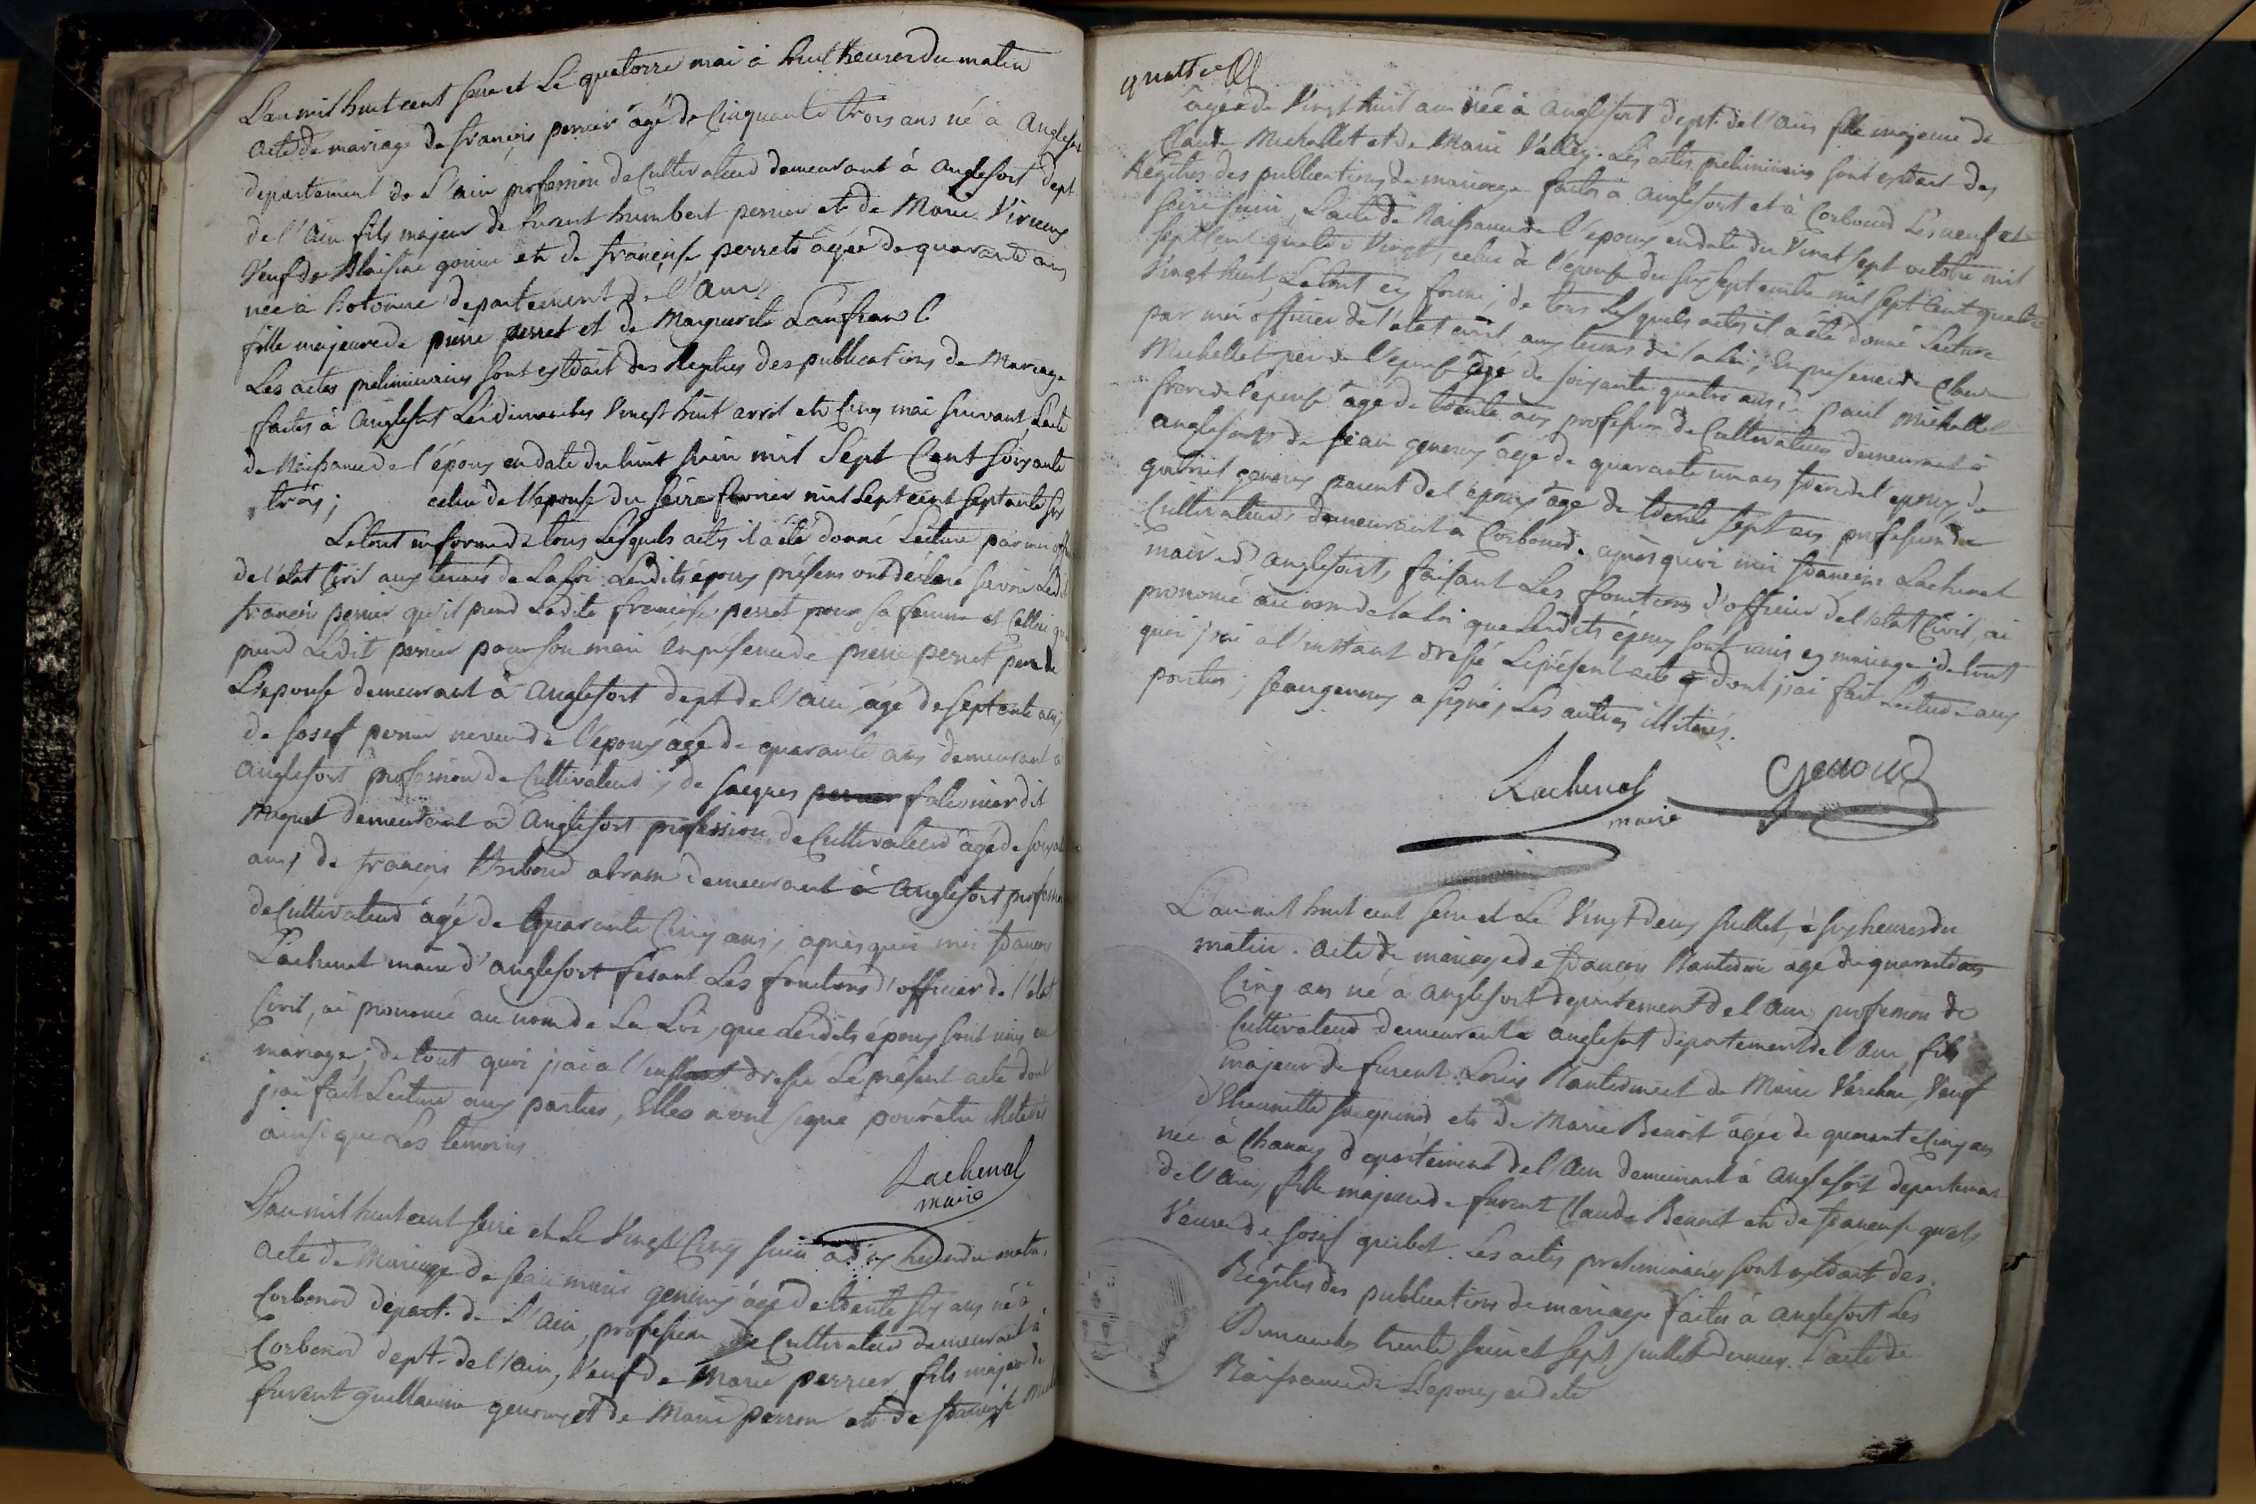 L'an mil huit cent seize et Le quatorze mai à huit heures du matin
acte de mariage de françois perrier âgé de Cinquante trois ans né à Anglefort
departement de L'ain profession de Cultivateur demeurant à anglefort dept
de l'ain fils majeur de furent humbert perrier et de Marie
Veuf de Blaisine et de françoise perret âgée de quarante ans
née à hotonne departement de l'ain
fille majeure de pierre perret et de Marguerite Lanfranc
Les actes preliminaires sont extrait des Registres des publications de Mariage
faites à anglefort Les dimanches Vingt huit avril et Cinq mai suivant, L'acte
de Naissance de l'époux en date du huit juin mil Sept Cent soixante
trois; celui de l'epouse du seize fevrier mil sept cent septante six
Le tout en forme de tous Lesquels actes il a été donné Lecture par moi off
de l'etat Civil aux termes de La Loi. Lesdits époux présens ont déclaré savoir Ledit
françois perrier qu'il prend Ladite françoise perret pour sa femme et Celleci qu
prend Ledit perrier pour son mari En présence de pierre perret pere de
L'epouse demeurant à anglefort dept de l'ain, âgé de septante ans,
de josef perrier neveu de l'époux âgé de quarante ans demeurant à
anglefort profession de Cultivateur; de jacques perrier falconier dit
Maguet demeurant à anglefort profession de Cultivateur âgé de soixante
ans, de françois demeurant à anglefort, profession
de Cultivateur âgé de quarante Cinq ans; après quoi moi françois
Lachenal maire d'anglefort fesant Les fonctions d'officier de l'etat
Civil, ai prononcé au nom de La Loi, que Lesdits époux sont unis en
mariage; de tout quoi j'ai a l'instant dressé Le présent acte dont
j'ai fait Lecture aux parties, Elles n'ont signé pour être illeterés
ainsi que Les témoins
Lachenal
maire
L'an mil huit cent seize et Le Vingt Cinq juin à dix heures du matin,
acte de Mariage de jean marie genoux âgé de trente six ans, né à
Corbonod départ. de L'Ain, profession de Cultivateur demeurant à
Corbonod dept. de l'ain, Veuf de Marie perrier, fils majeur de
furent guillaume genoux et de Marie perron et de françoise
quatre
âgée de Vingt huit ans née à anglefort dept. de l'ain fille majeure de
Claude Michellet et de Marie Vallez. Les actes preliminaires sont extrait des
Régitres des publications de mariage faites à anglefort et à Corbonod Les neuf et
seize juin, L'acte de Naissance de l'époux en date du Vingt sept octobre mil
sept cent quatre Vingt, celui de l'épouse du six septembre mil sept cent quatre
Vingt huit, Le tout en forme; de tous Lesquels actes il a été donné Lecture
par moi officier de l'etat civil aux termes de la Loi; En presence de Claude
Michellet pere de l'épouse âgé de soixante quatre ans; de paul michellet
frere de l'épouse âgé de trente ans profession de Cultivateurs demeurant à
anglefort; de jean genoux âgé de quarante un ans frere de l'époux, de
genoux parent de l'époux âgé de trente sept ans profession de
Cultivateurs demeurant à Corbonod. après quoi moi françois Lachenal
maire d'anglefort, faisant Les fonctions d'officier de l'etat Civil, ai
prononcé au nom de la loi que Lesdits époux sont unis en mariage. de tout
quoi j'ai a l'instant dressé Le présent acte dont j'ai fait Lecture aux
parties; jean genoux a signé, Les autres illiterés.
Lachenal
maire
Genoux
L'an mil huit cent seize et Le Vingt deux juillet, à six heures du
matin. acte de mariage de françois âgé de quarante
Cinq ans né à anglefort departement de l'ain profession de
Cultivateur demeurant à anglefort departement de l'ain fils
majeur de furent Louis et de Marie Veuf
d'Etiennette et de Marie Benoit âgée de quarante Cinq ans
née à Chanay département de l'ain demeurant à anglefort departement
de l'ain, fille majeure de furent Claude Benoit et de françoise
Veuve de josef. Les actes preliminaires sont extrait des
Régitres des publications de mariage faites à anglefort Les
Dimanches trente juin et sept juillet dernier. L'acte de
Naissance de L'epoux en date